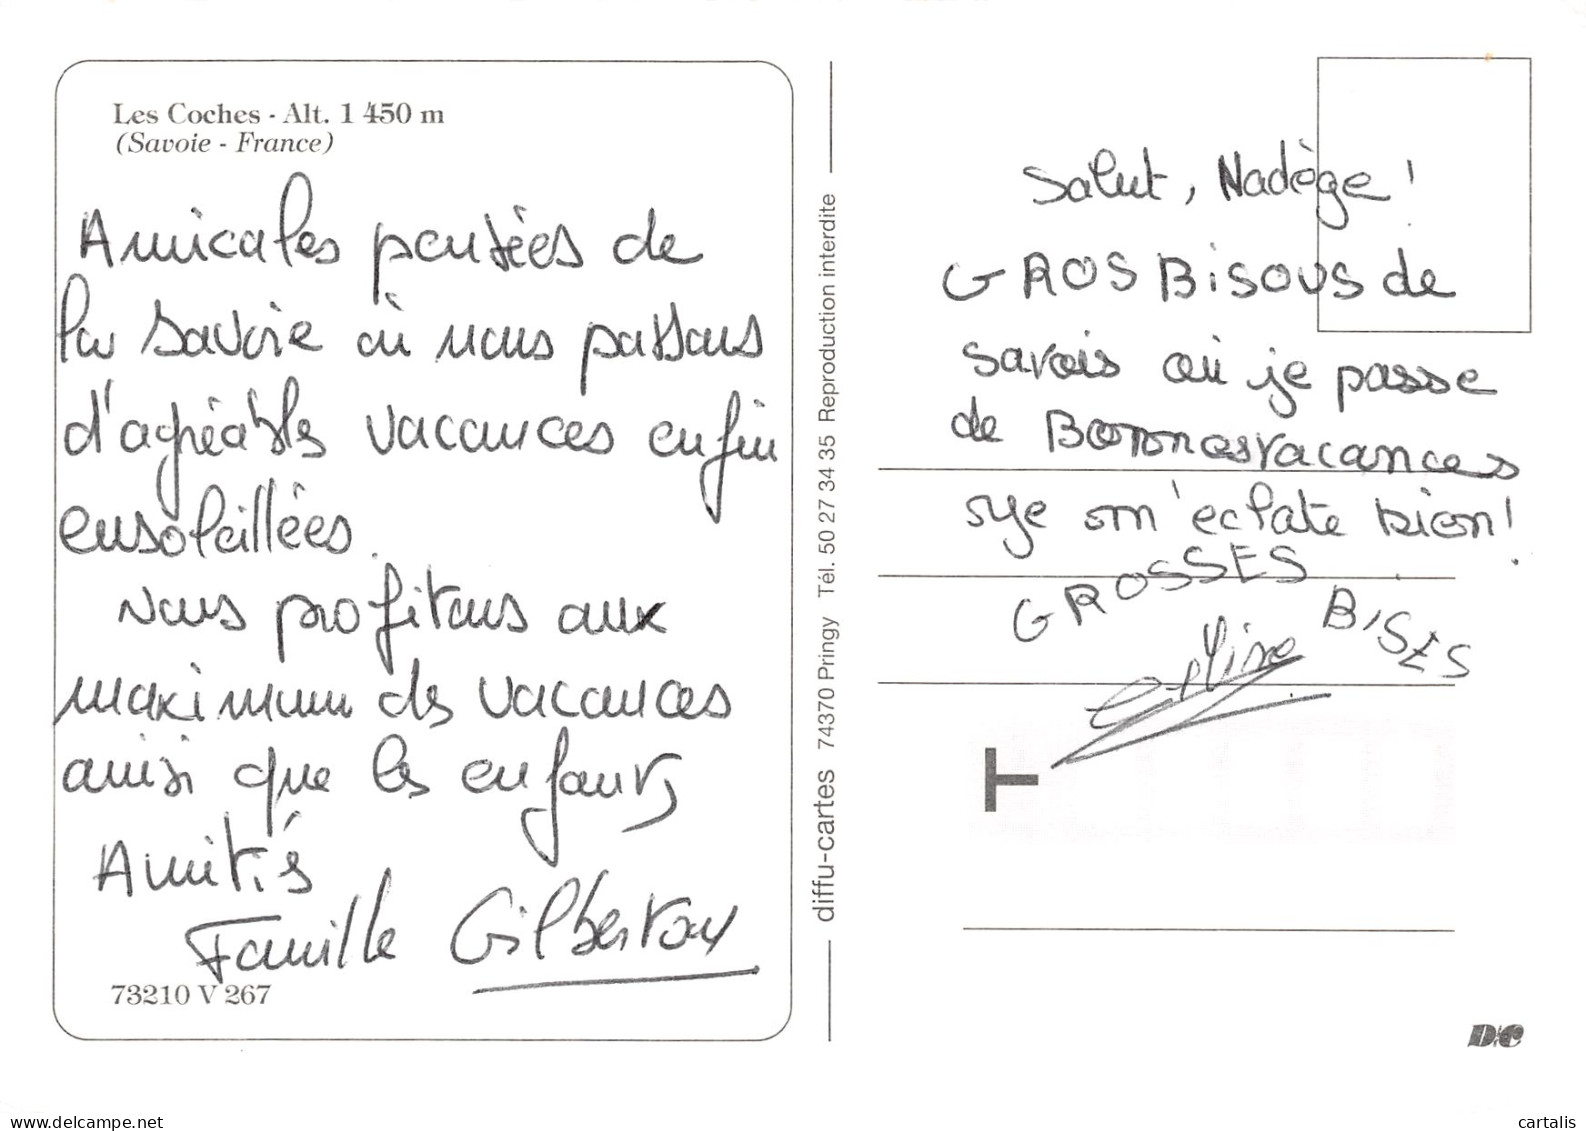 Les Coches - Alt. 1 450 m
(Savoie - France)
Amicales pensées de
la Savoie où nous passons
d'agréables vacances enfin
ensoleillées.
Nous profitons aux
maximum des vacances
ainsi que les enfants
Amitiés
Famille Gilberton
73210 V 267
diffu-cartes 74370 Pringy Tél. 50 27 34 35 Reproduction interdite
Salut, Nadège !
GROS BISOUS de
Savois où je passe
de Bonnes vacances
Je m'eclate bien !
GROSSES BISES
T
D/C
delcampe.net
cartalis